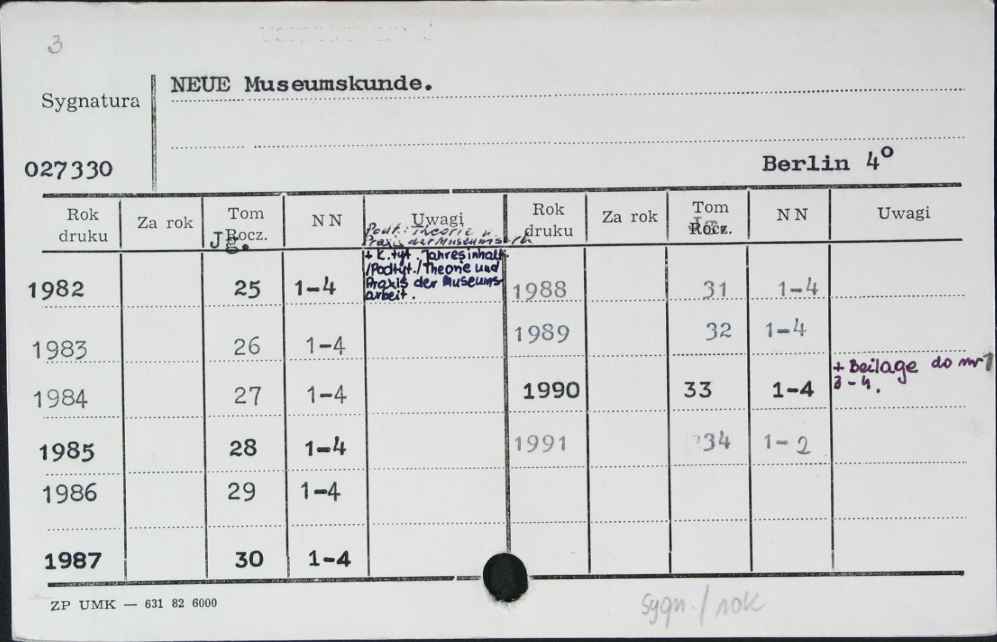 3
NEUE Museumskunde.
Sygnatura
027330
Berlin 4°
Rok druku Za rok Tom Rocz. Jg. NN Uwagi Rok druku Za rok Tom Rocz. Jg. NN Uwagi
Podt.: Theorie u.
Praxis der Museumsarb
+ K. tyt. Jahresinhalt
/Podtyt./Theorie und
Praxis der Museums-
arbeit.
1982 25 1-4 1988 31 1-4
1983 26 1-4 1989 32 1-4
1984 27 1-4 1990 33 1-4 + Beilage do nr 1
3-4.
1985 28 1-4 1991 34 1-2
1986 29 1-4
1987 30 1-4
ZP UMK — 631 82 6000
Sygn./rok